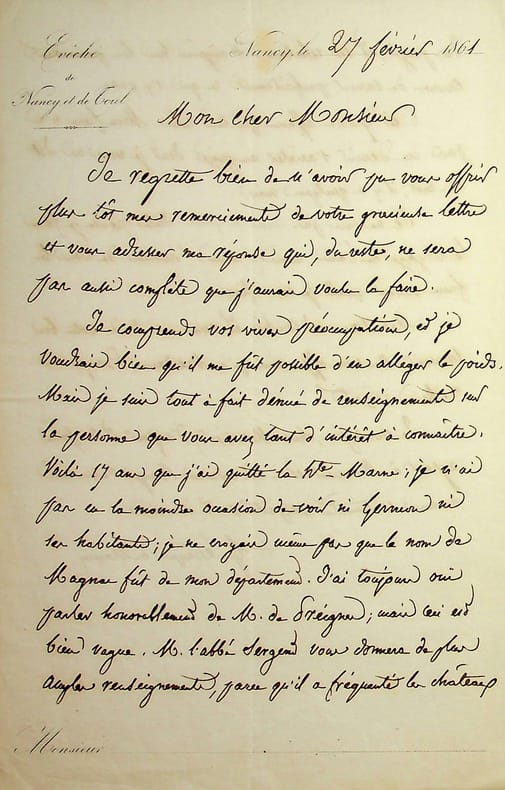 Evêché
de
Nancy et de Toul
Nancy, le 27 février 1861
Mon cher Monsieur
Je regrette bien de n'avoir pu vous offrir
plus tôt mes remerciements de votre gracieuse lettre
et vous adresser ma réponse qui, du reste, ne sera
pas aussi complète que j'aurais voulu la faire.
Je comprends vos vives préoccupations, et je
voudrais bien qu'il me fût possible d'en alléger le poids.
Mais je suis tout à fait dénué de renseignements sur
la personne que vous avez tant d'intérêt à connaître.
Voilà 17 ans que j'ai quitté la Hte-Marne ; je n'ai
pas eu la moindre occasion de voir ni ni
ses habitants ; je ne croyais même pas que le nom de
Magnac fût de mon département. J'ai toujours ouï
parler honorablement de M. de ; mais ceci est
bien vague. M. l'abbé Sergent vous donnera de plus
amples renseignements, parce qu'il a fréquenté les châteaux
Monsieur